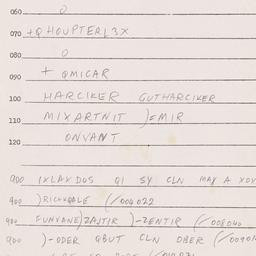 060 0
070 +QHOUPTERL3X
080 0
090 + QMICAR
100 HARCIKER GUTHARCIKER
110 MIXARTNIT )=MIR
120 ONVANT
900 IXLAXDOS QI SY CLN MAY A XOV
900 )RICKXDALE (/004022
900 FUNXANE)ZANTIR )-ZENTIR (/008040
900 )-ODER QBUT CLN OBER (/00901